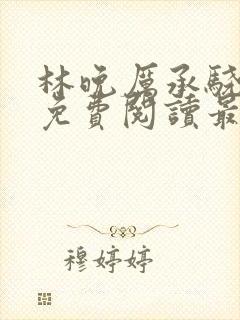 林晚厲承驍
免費閱讀最
穆婷婷